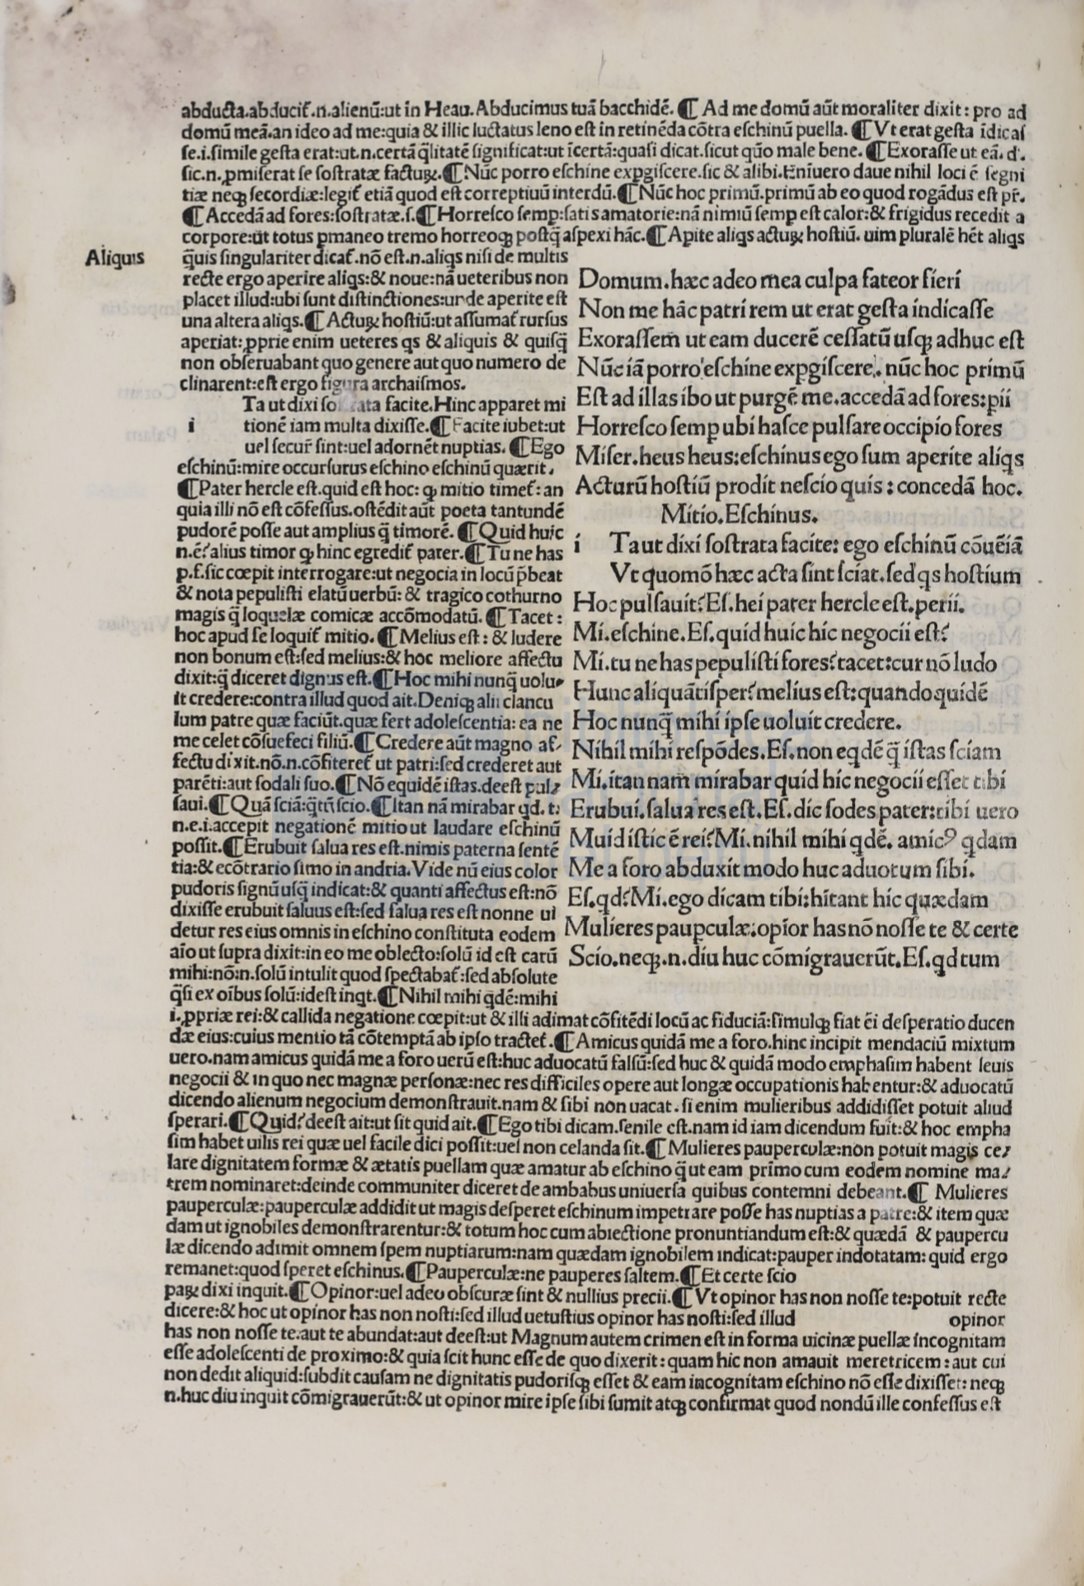 abducta.abducit᷑.n.alienū:ut in Heau.Abducimus tuā bacchidē.¶ Ad me domū aūt moraliter dixit: pro ad
domū meā.an ideo ad me:quia & illic luctatus leno est in retinēda cōtra eschinū puella.¶Vt erat gesta īdicas
se.i.simile gesta erat:ut.n.certā q̄litatē significat:ut īcertā:quasi dicat.sicut quō male bene.¶Exorasse ut eā.d'.
sic.n.ꝓmiserat se sostratæ factuꝝ.¶Nūc porro eschine expgiscere.sic & alibi.Eniuero daue nihil loci ē segni
tiæ neqꝫ secordiæ:legit᷑ etiā quod est correptiuū interdū.¶Nūc hoc primū.primū ab eo quod rogādus est pr̄.
¶Accedā ad fores:sostratæ.s.¶Horresco semp:satis amatorie:nā nimiū semp est calor:& frigidus recedit a
corpore:ut totus ꝑmaneo tremo horreoqꝫ postq̄ aspexi hāc.¶Apite aliqs actuꝝ hostiū. uim pluralē hēt aliqs
Aliquis
q̄uis singulariter dicat᷑.nō est.n.aliqs nisi de multis
recte ergo aperire aliqs:& noue:nā ueteribus non
placet illud:ubi sunt distinctiones:unde aperite est
una altera aliqs.¶Actuꝝ hostiū:ut assumat᷑ rursus
aperiat:ꝓprie enim ueteres qs & aliquis & quisq̄
non obseruabant quo genere aut quo numero de
clinarent:est ergo figura archaismos.
Ta ut dixi so ata facite.Hinc apparet mi
i tionē iam multa dixisse.¶Facite iubet:ut
uel secur̄ sint:uel adornēt nuptias.¶Ego
eschinū:mire occursurus eschino eschinū quærit.
¶Pater hercle est.quid est hoc: ꝙ mitio timet᷑: an
quia illi nō est cōfessus.ostēdit aūt poeta tantundē
pudorē posse aut amplius q̄ timorē.¶Quid huic
n.ē?alius timor ꝙ hinc egredit᷑ pater.¶Tu ne has
p.f.sic cœpit interrogare:ut negocia in locū p̄beat
& nota pepulisti elatū uerbū: & tragico cothurno
magis q̄ loquelæ comicæ accōmodatū.¶Tacet:
hoc apud se loquit᷑ mitio.¶Melius est: & ludere
non bonum est:sed melius:& hoc meliore affectu
dixit:q̄ diceret dignus est.¶Hoc mihi nunq̄ uolu⸗
it credere:contra illud quod ait.Deniqꝫ alii clancu
lum patre quæ faciūt.quæ fert adolescentia: ea ne
me celet cōsuefeci filiū.¶Credere aūt magno af⸗
fectu dixit.nō.n.cōfiteret᷑ ut patri:sed crederet aut
parēti:aut sodali suo.¶Nō equidē istas.deest pul⸗
saui.¶Quā sciā:q̄tū scio.¶Itan nā mirabar qd. t:
n.e.i.accepit negationē mitio ut laudare eschinū
possit.¶Erubuit salua res est.nimis paterna sentē
tia:& ecōtrario simo in andria.Vide nū eius color
pudoris signū usq̄ indicat:& quanti affectus est:nō
dixisse erubuit saluus est:sed salua res est nonne ui
detur res eius omnis in eschino constituta eodem
aīo ut supra dixit:in eo me oblecto:solū id est carū
mihi:nō:n.solū intulit quod spectabat᷑:sed absolute
q̄si ex oībus solū:idest inqt.¶Nihil mihi qdē:mihi
Domum.hæc adeo mea culpa fateor fieri
Non me hāc patri rem ut erat gesta indicasse
Exorassem̄ ut eam ducerē cessatū usqꝫ adhuc est
Nūc iā porro eschine expgiscere. nūc hoc primū
Est ad illas ibo ut purgē me.accedā ad fores:pii
Horresco semp ubi hasce pulsare occipio fores
Miser.heus heus:eschinus ego sum aperite aliqs
Acturū hostiū prodit nescio quis: concedā hoc.
Mitio.Eschinus.
i Ta ut dixi sostrata facite: ego eschinū cōuēiā
Vt quomō hæc acta sint sciat.sed qs hostium
Hoc pulsauit?Es.hei pater hercle est.perii.
Mi.eschine.Es.quid huic hic negocii est?
Mi.tu ne has pepulisti fores?tacet:cur nō ludo
Hunc aliquātisper?melius est:quandoquidē
Hoc nunq̄ mihi ipse uoluit credere.
Nihil mihi respōdes.Es.non eqdē q̄ istas sciam
Mi.itan nam mirabar quid hic negocii esset tibi
Erubui.salua res est.Es.dic sodes pater:tibi uero
Muid istic ē rei?Mi.nihil mihi qdē. amicꝰ qdam
Me a foro abduxit modo huc aduotum sibi.
Es.qd?Mi.ego dicam tibi:hitant hic quædam
Mulieres paupculæ:opior has nō nosse te & certe
Scio.neqꝫ.n.diu huc cōmigrauerūt.Es.qd tum
i.ꝓpriæ rei:& callida negatione cœpit:ut & illi adimat cōfitēdi locū ac fiduciā:simulqꝫ fiat ēi desperatio ducen
dæ eius:cuius mentio tā cōtemptā ab ipso tractet᷑.¶Amicus quidā me a foro.hinc incipit mendaciū mixtum
uero.nam amicus quidā me a foro uerū est:huc aduocatū falsū:sed huc & quidā modo emphasim habent leuis
negocii & in quo nec magnæ personæ:nec res difficiles opere aut longæ occupationis habentur:& aduocatū
dicendo alienum negocium demonstrauit.nam & sibi non uacat. si enim mulieribus addidisset potuit aliud
sperari.¶Quid?deest ait:ut sit quid ait.¶Ego tibi dicam.senile est.nam id iam dicendum fuit:& hoc empha
sim habet uilis rei quæ uel facile dici possit:uel non celanda sit.¶Mulieres pauperculæ:non potuit magis ce⸗
lare dignitatem formæ & ætatis puellam quæ amatur ab eschino q̄ ut eam primo cum eodem nomine ma⸗
trem nominaret:deinde communiter diceret de ambabus uniuersa quibus contemni debeant.¶ Mulieres
pauperculæ:pauperculæ addidit ut magis desperet eschinum impetrare posse has nuptias a patre:& item quæ
dam ut ignobiles demonstrarentur:& totum hoc cum abiectione pronuntiandum est:& quædā & paupercu
læ dicendo adimit omnem spem nuptiarum:nam quædam ignobilem indicat:pauper indotatam: quid ergo
remanet:quod speret eschinus.¶Pauperculæ:ne pauperes saltem.¶Et certe scio
paꝝ dixi inquit.¶Opinor:uel adeo obscuræ sint & nullius precii.¶Vt opinor has non nosse te:potuit recte
dicere:& hoc ut opinor has non nosti:sed illud uetustius opinor has nosti:sed illud opinor
has non nosse te.aut te abundat:aut deest:ut Magnum autem crimen est in forma uicinæ puellæ incognitam
esse adolescenti de proximo:& quia scit hunc esse de quo dixerit: quam hic non amauit meretricem: aut cui
non dedit aliquid:subdit causam ne dignitatis pudorisqꝫ esset & eam incognitam eschino nō esse dixisset: neqꝫ
n.huc diu inquit cōmigrauerūt:& ut opinor mire ipse sibi sumit atqꝫ confirmat quod nondū ille confessus est